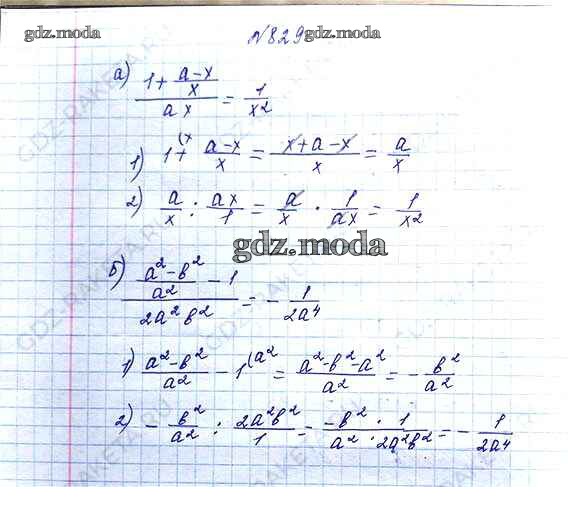 gdz.moda
№829
gdz.moda
а) (1 + (a-x)/x)/(ax) = 1/x²
1) 1(x + (a-x)/x = (x+a-x)/x = a/x
2) a/x : ax/1 = a/x · 1/ax = 1/x²
gdz.moda
б) ((a²-b²)/a² - 1)/(2a²b²) = - 1/(2a⁴)
1) (a²-b²)/a² - 1(a² = (a²-b²-a²)/a² = - b²/a²
2) - b²/a² : 2a²b²/1 = (-b² · 1)/(a² · 2a²b²) = - 1/(2a⁴)
GDZ-RAKETA.RU
GDZ-RAKETA.RU